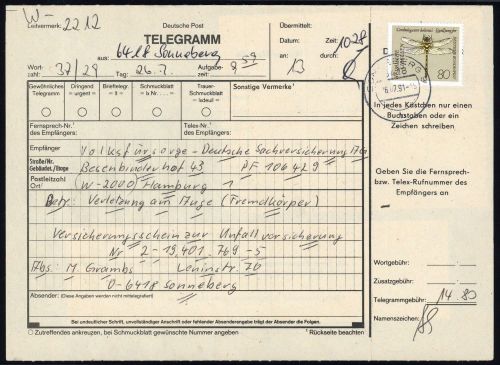 W- 2212
Leitvermerk:
Deutsche Post
TELEGRAMM
aus: 6418 Sonneberg
Übermittelt:
Datum: Zeit: 1028
an: 13 durch:
Wort-
zahl: 37/29 Tag: 26.7. Aufgabe-
zeit: 9 59
Gewöhnliches
Telegramm
Dringend
= urgent =
Brieftelegr.
= lt =
Schmuckblatt
= lx =
Trauer-
Schmuckblatt
= lxdeuil =
Sonstige Vermerke¹
In jedes Kästchen nur einen
Buchstaben oder ein
Zeichen schreiben
Fernsprech-Nr.
des Empfängers:
Telex-Nr.
des Empfängers:
Empfänger Volksfürsorge - Deutsche Sachversicherung AG
Straße/Nr.
Gebäudet./Etage Besenbinderhof 43 PF 106429
Postleitzahl
Ort W-2000 Hamburg 1
Betr. Verletzung am Auge (Fremdkörper)
Versicherungsschein zur Unfallversicherung
Nr 2-19.401.769-5
Abs: M. Grambs Leninstr. 76
O-6418 Sonneberg
Geben Sie die Fernsprech-
bzw. Telex-Rufnummer des
Empfängers an
Wortgebühr:
Zusatzgebühr:
Telegrammgebühr: 14 80
Namenszeichen:
Absender: (Diese Angaben werden nicht mittelegrafiert)
Bei undeutlicher Schrift, unvollständiger Anschrift oder fehlender Absenderangabe trägt der Absender die Folgen.
○ Zutreffendes ankreuzen, bei Schmuckblatt gewünschte Nummer angeben
¹ Rückseite beachten
80